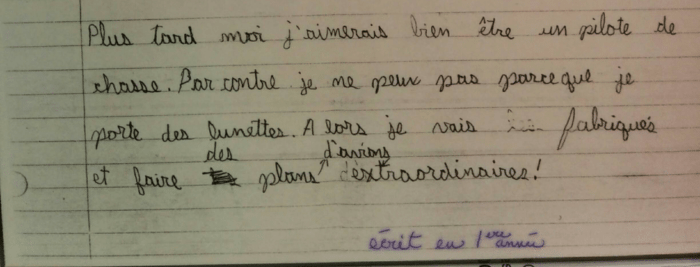 Plus tard moi j'aimerais bien être un pilote de
chasse. Par contre je ne peux pas parce que je
porte des lunettes. Alors je vais fabriqués
des d'avions
et faire plans d'extraordinaires!
écrit en 1ere année